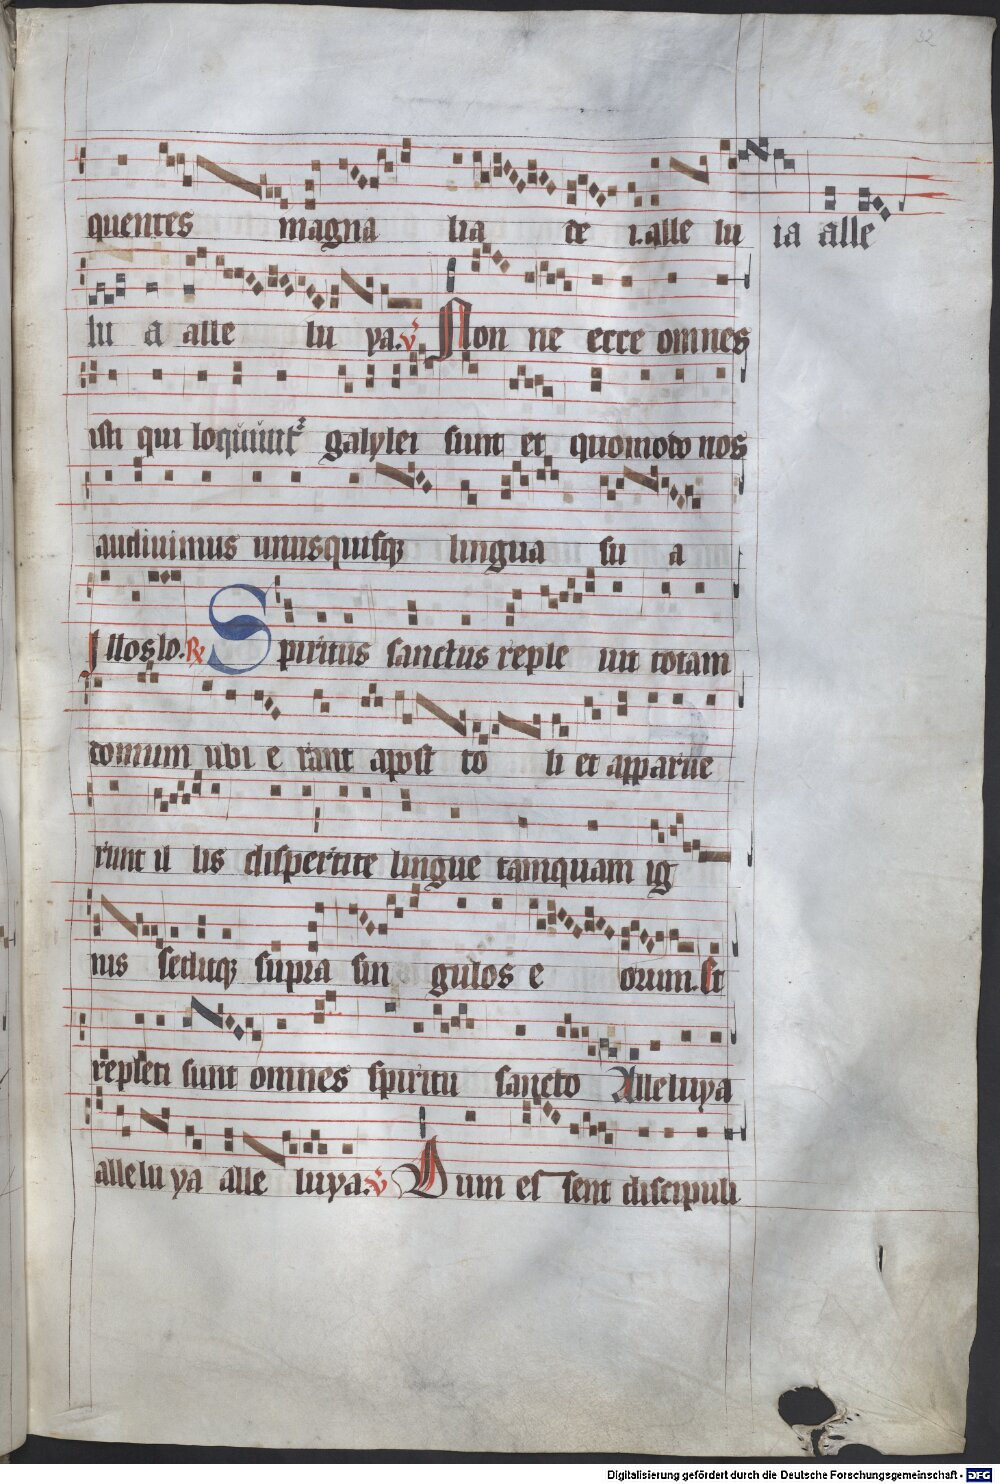 32
quentes magna lia de i. alle lu ia alle
lu a alle lu ya. v Non ne ecce omnes
isti qui loquunt galylei sunt et quomodo nos
audiuimus unusquisq lingua su a
Illos lo. R Spiritus sanctus reple uit totam
domum ubi e rant apost to li et apparue
runt il lis dispertite lingue tamquam ig
nis seditq supra sin gulos e orum. Et
repleti sunt omnes spiritu sancto Alleluya
alle lu ya alle luya. v Dum es sent discipuli
Digitalisierung gefördert durch die Deutsche Forschungsgemeinschaft - DFG